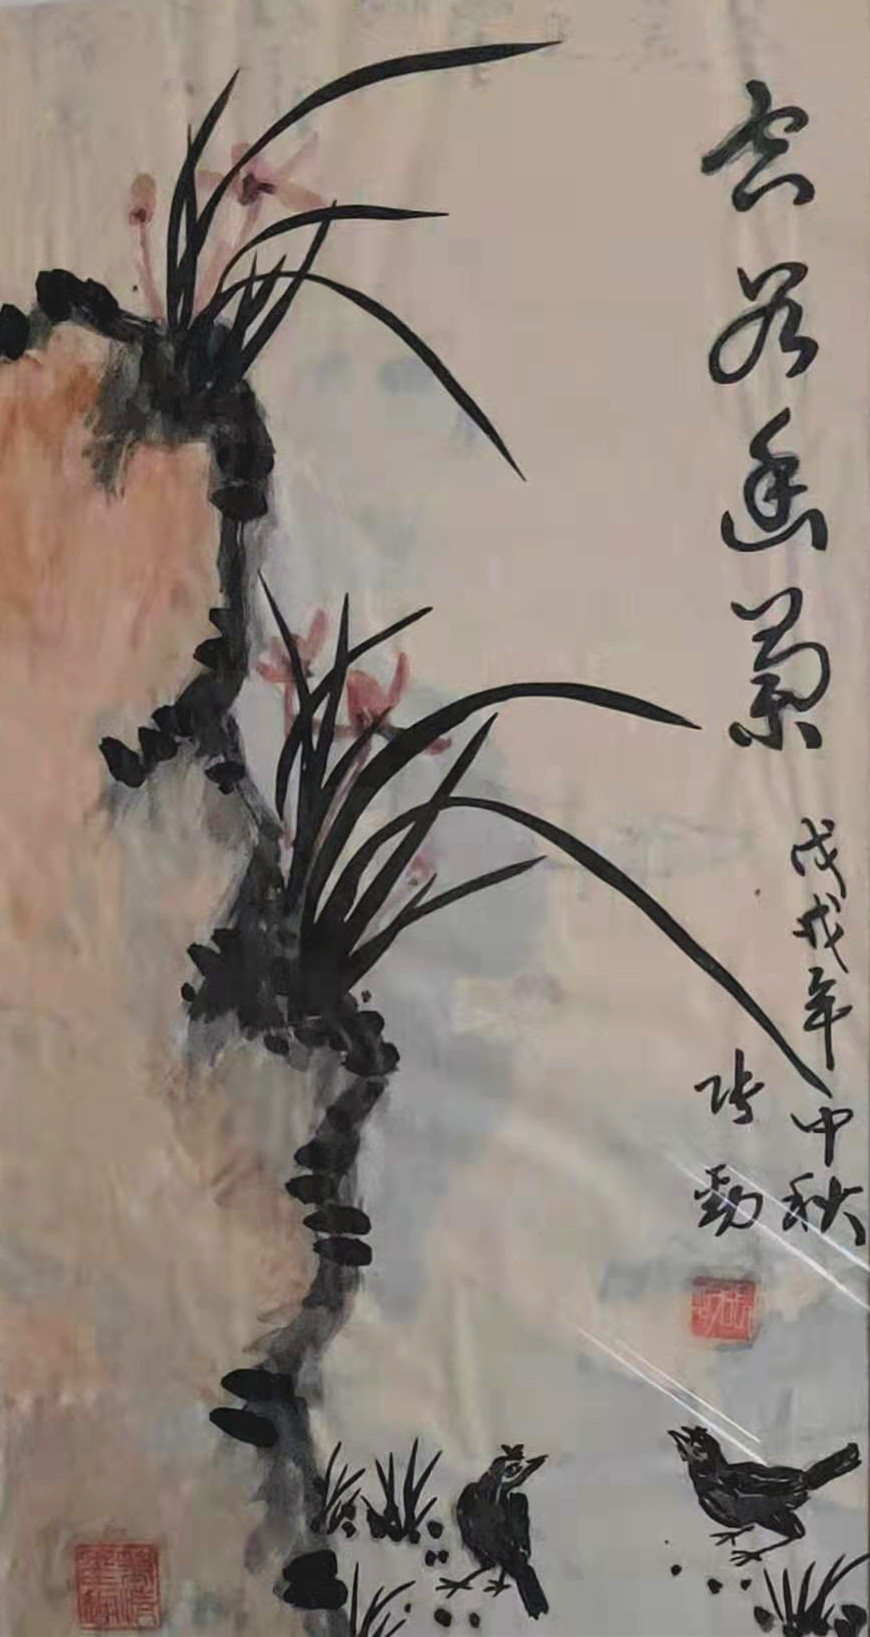 空谷幽兰
戊戌年中秋
张劲